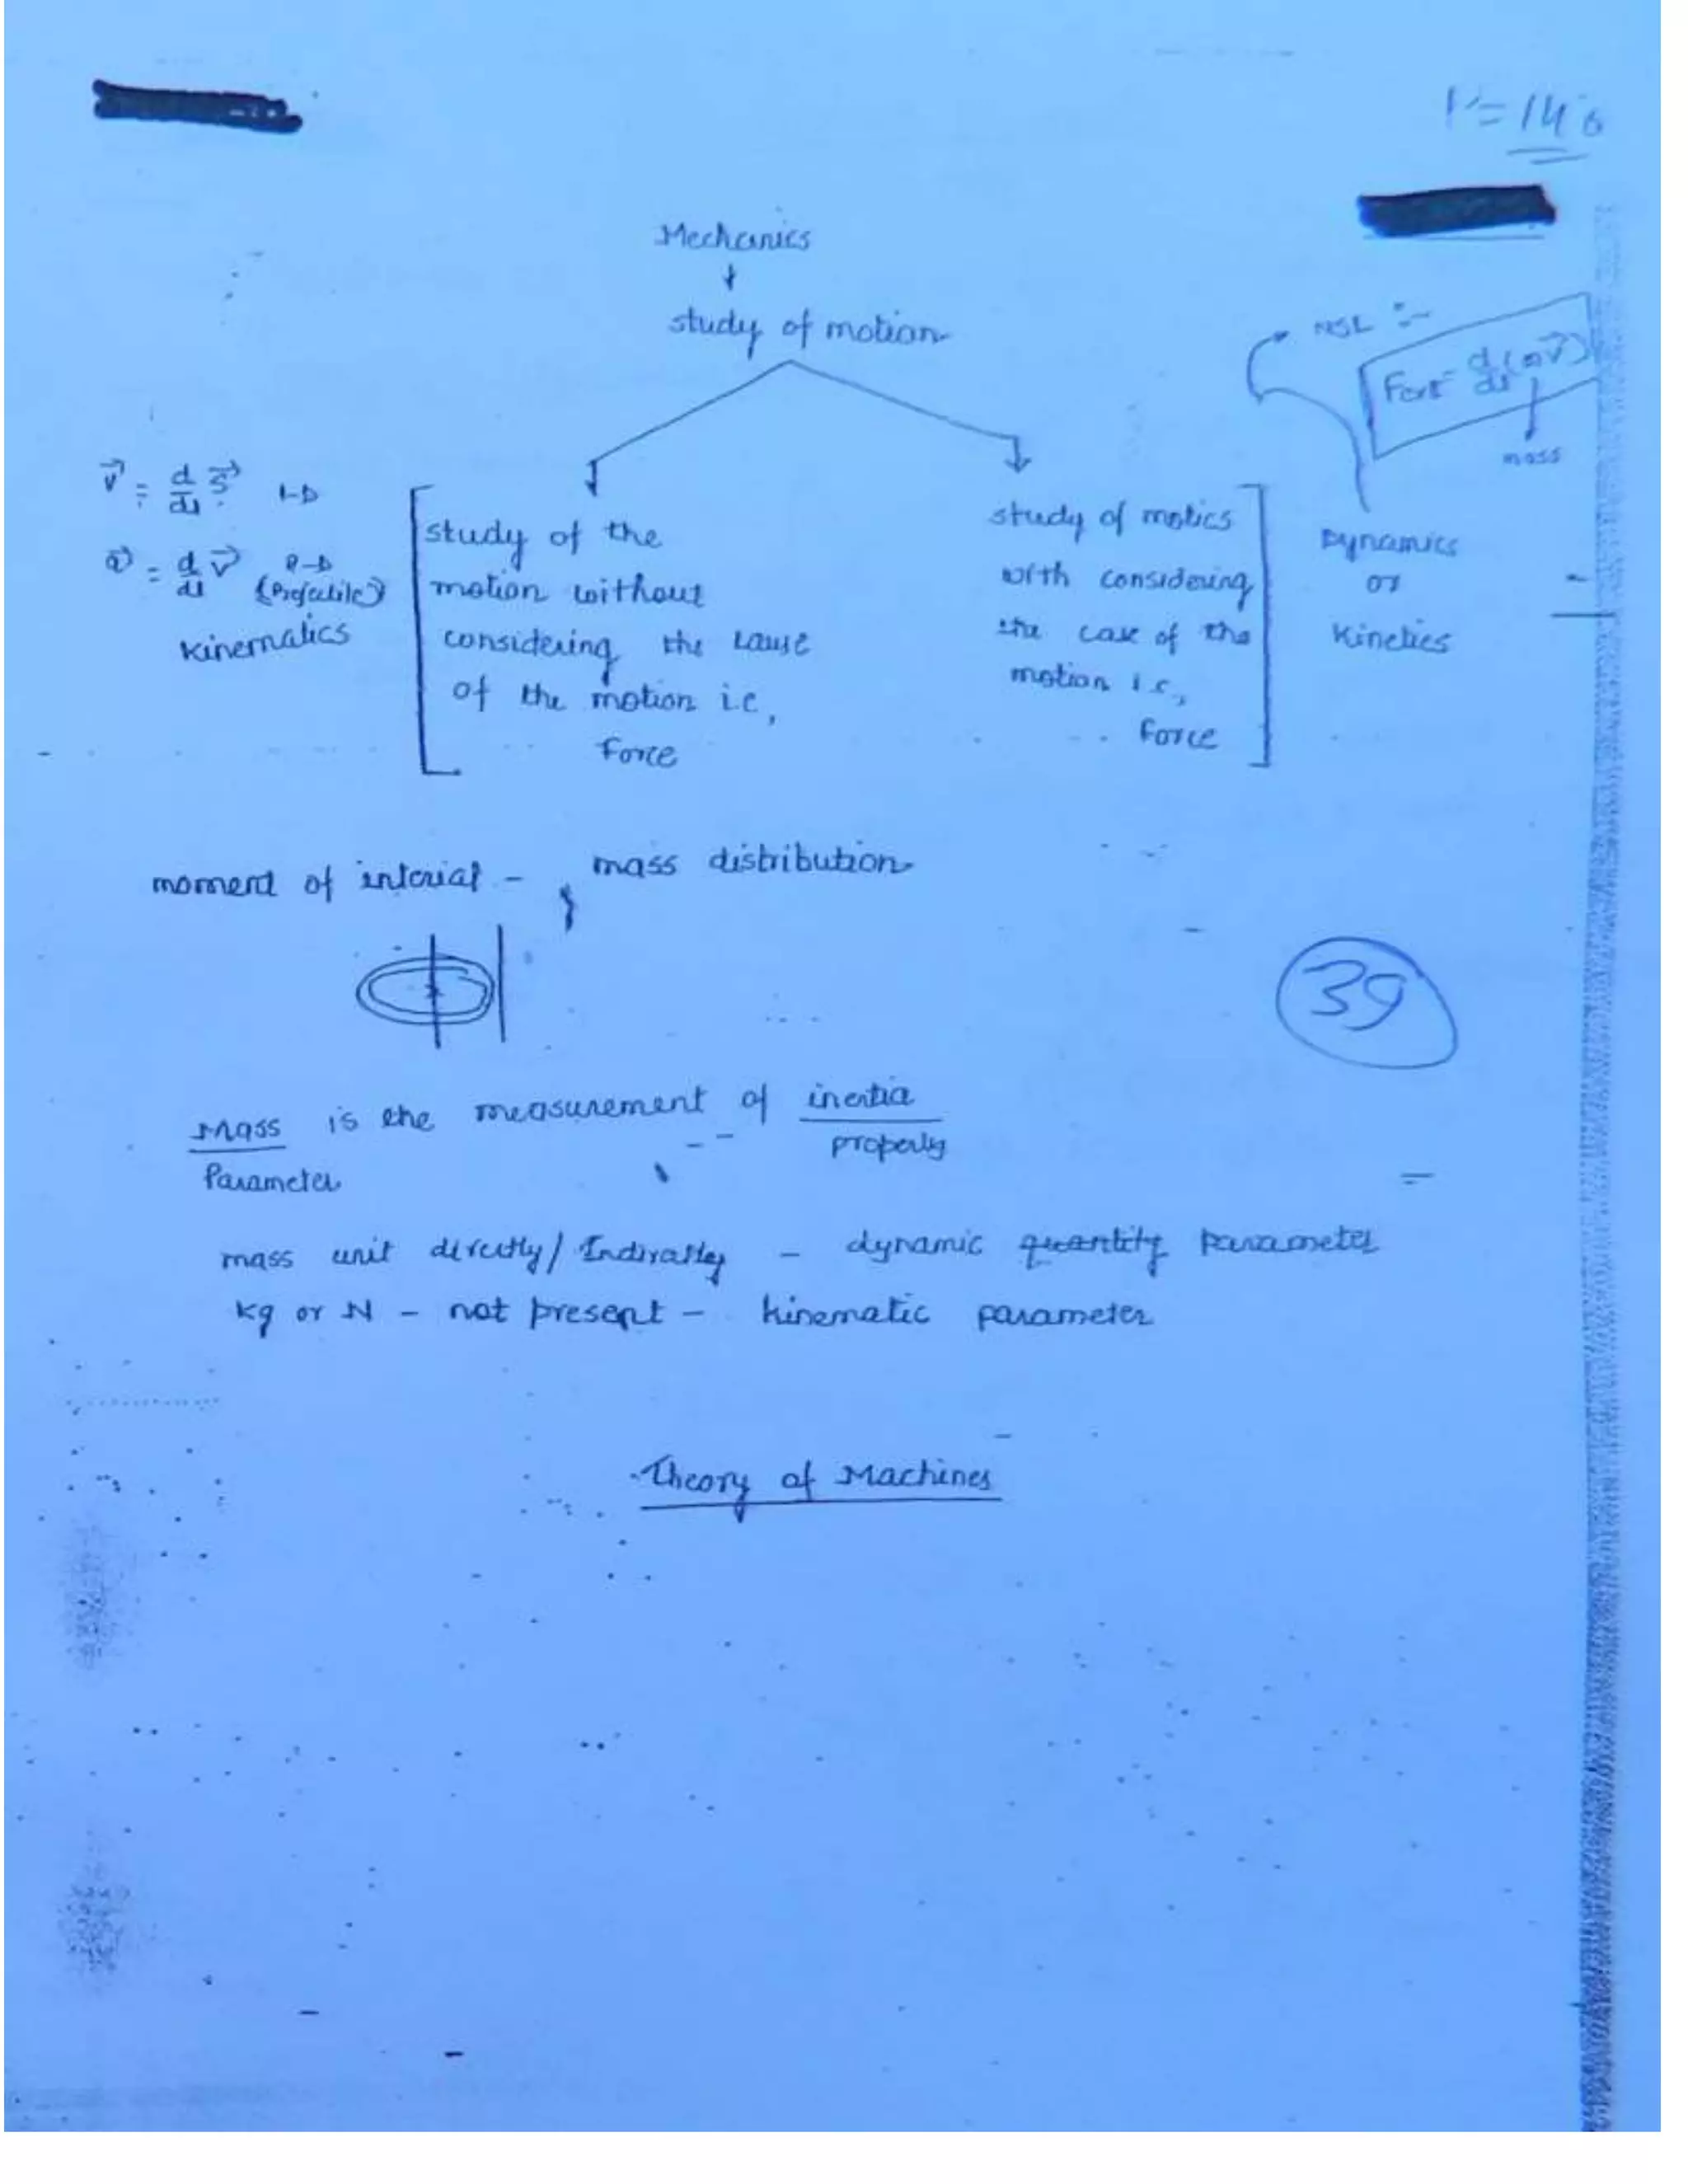 Mechanics
study of motion
NSL :-
Fext = d/dt (mv⃗)
mass
v⃗ = d/dt s⃗ 1-D
a⃗ = d/dt v⃗ 2-D
(Projectile)
kinematics
study of the
motion without
considering the cause
of the motion i.e,
Force
study of motics
with considering
the case of the
motion i.e,
force
Dynamics
or
Kinetics
moment of interial - mass distribution
39
Mass is the measurement of inertia
Parameter property
mass unit directly/Indiratley - dynamic quantity parameter
kg or N - not present - kinematic parameter
Theory of Machines